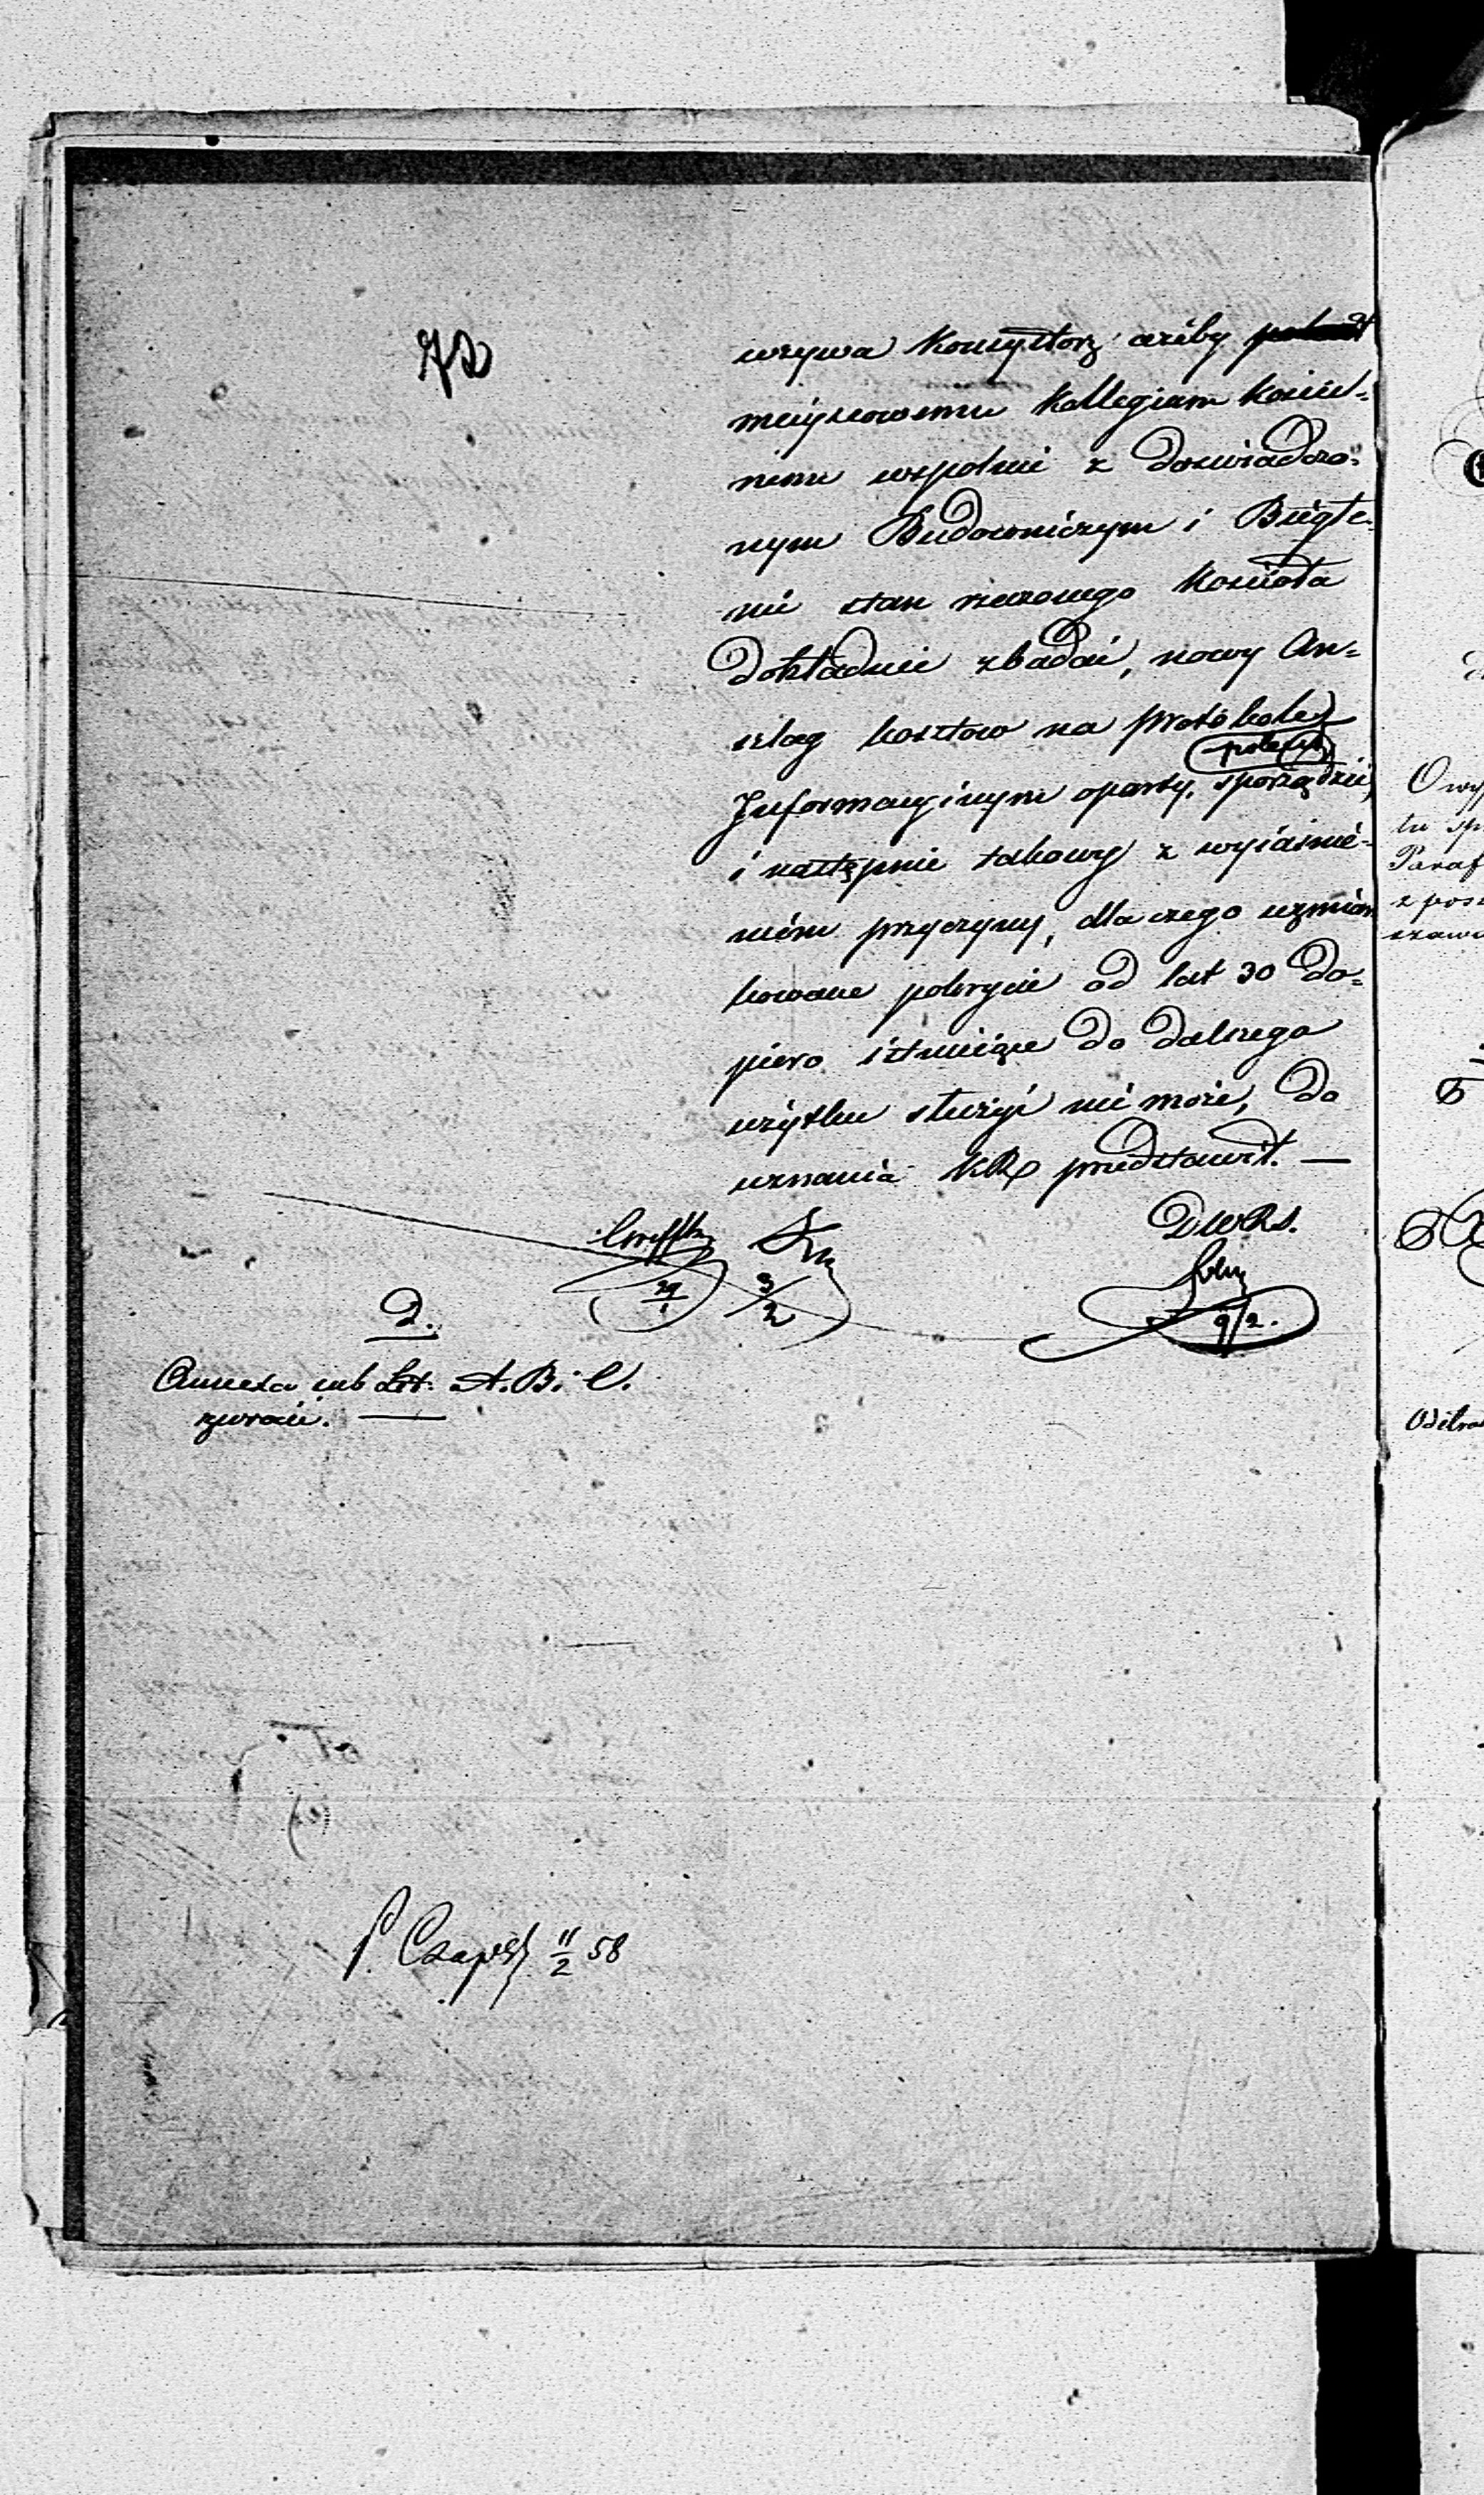 72
wzywa Konsystorz ażeby
mieyscowemu Kollegium Kościel-
nemu wspolnie z doswiadczo-
nym Budowniczym i Biegłe
mi stan rzeczonego Kościoła
dokładnie zbadać, nowy An-
szlag kosztow na protokole
polecił
Informacyinym oparty, sporządzić,
i następnie takowy z wyiaśnie-
niem przyczyny, dla czego wzmian
kowane pokrycie od lat 30 do-
piero istnieiące do dalszego
użytku służyć nie może, do
uznania KR przedstawił. —
DWRS.
3/2
9/2.
2.
Annexa sub Lit: A. B. i C.
zwrócić. —
P. Czapski 11/2 58
O wy
tu sp
Paraf
z pos
szaw